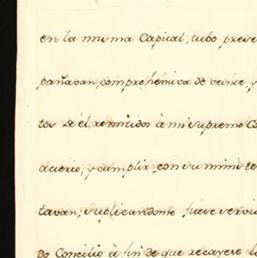 en la misma Capital, tubo prese
pañavan, comprehensiva de veinte, y
tos de él remitidos à mi supremo Co
acierto, y cumplir con su minist
tavan; suplicandome fuese servi
do Concilio à fin de que recayere l